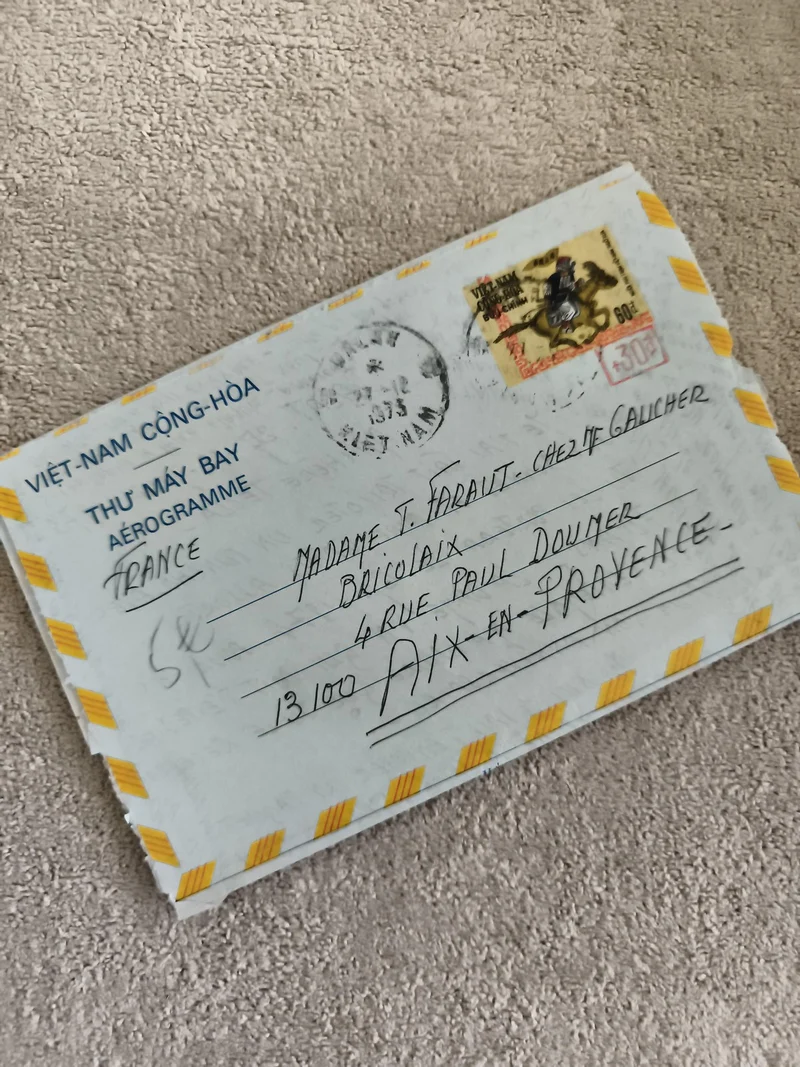 VIỆT-NAM CỘNG-HÒA
THƯ MÁY BAY
AÉROGRAMME
FRANCE
27-12
1973
VIET NAM
VIỆT-NAM
CỘNG-HÒA
BƯU-CHÍNH
60đ
+30đ
MADAME T. FARAUT - CHEZ Mᴱ GAUCHER
BRICOLAIX
4 RUE PAUL DOUMER
13100 AIX-EN-PROVENCE-